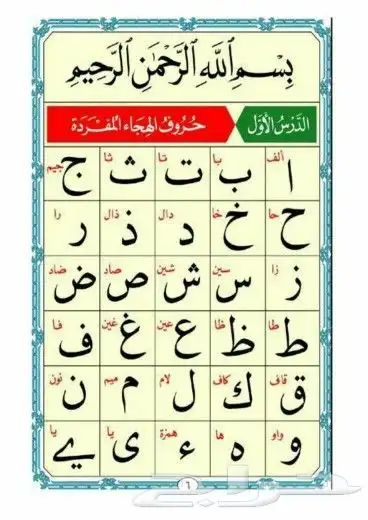 بِسْمِ ٱللَّهِ ٱلرَّحْمَٰنِ ٱلرَّحِيمِ
الدَّرْسُ الأَوَّل حُرُوفُ الهِجَاءِ المُفْرَدَة
ألف با تا ثا جيم
ا ب ت ث ج
حا خا دال ذال را
ح خ د ذ ر
زا سين شين صاد ضاد
ز س ش ص ض
طا ظا عين غين فا
ط ظ ع غ ف
قاف كاف لام ميم نون
ق ك ل م ن
واو ها همزة يا يا
و ه ء ى ے
٦
حراج